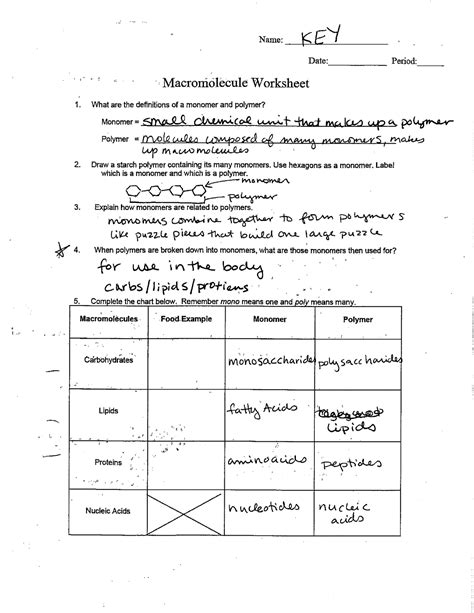 Name: KEY
Date: Period:
Macromolecule Worksheet
1. What are the definitions of a monomer and polymer?
Monomer = small chemical unit that makes up a polymer
Polymer = molecules composed of many monomers, makes
up macromolecules
2. Draw a starch polymer containing its many monomers. Use hexagons as a monomer. Label
which is a monomer and which is a polymer.
monomer
polymer
3. Explain how monomers are related to polymers.
monomers combine together to form polymers
like puzzle pieces that build one large puzzle
4. When polymers are broken down into monomers, what are those monomers then used for?
for use in the body
carbs/lipids/protiens
5. Complete the chart below. Remember mono means one and poly means many.
Macromolecules Food Example Monomer Polymer
Carbohydrates monosaccharides polysaccharides
Lipids fatty Acids
lipids
Proteins aminoacids peptides
Nucleic Acids nucleotides nucleic
acids